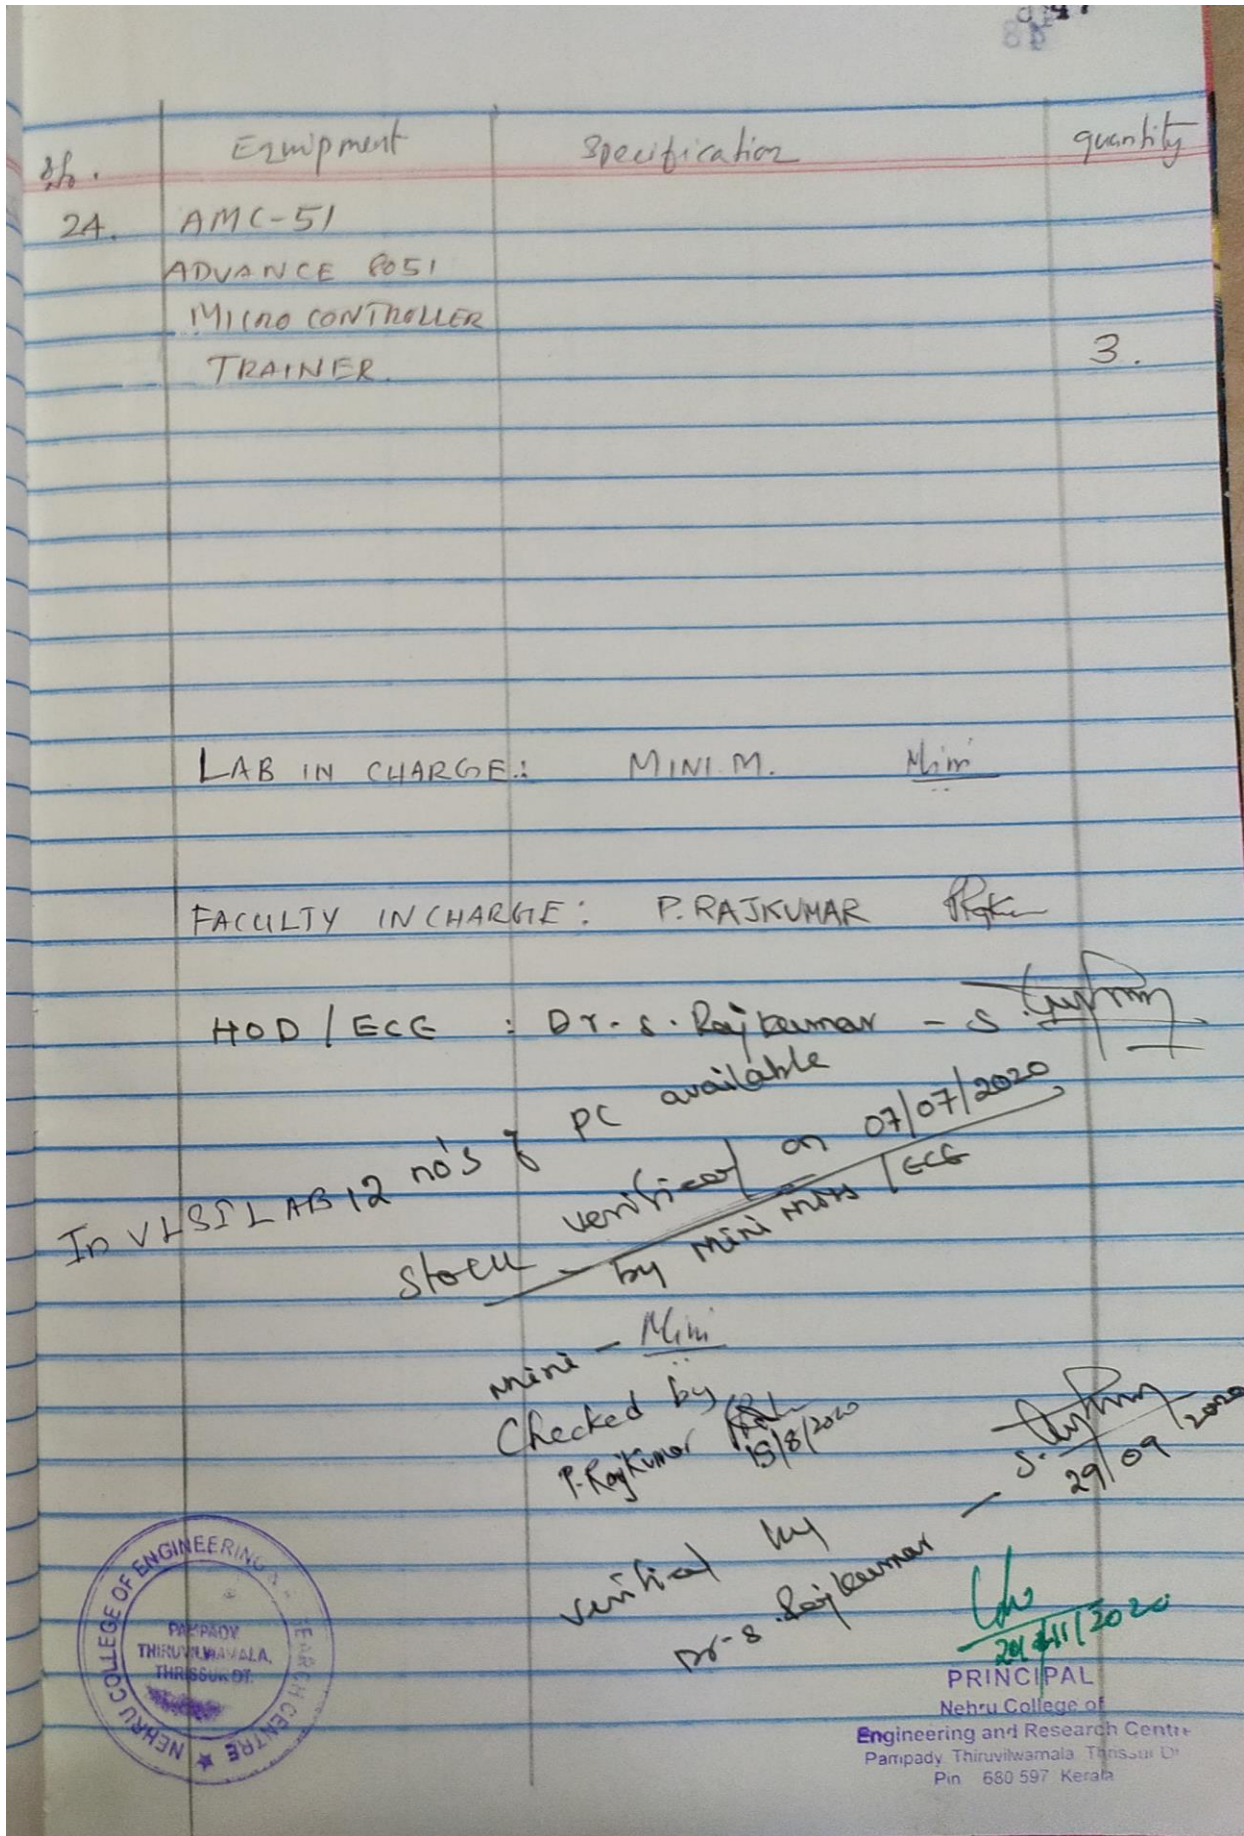 Equipment Specification quantity
24. AMC-51
ADVANCE 8051
MICRO CONTROLLER
TRAINER. 3.
LAB IN CHARGE: MINI.M. Mini
FACULTY INCHARGE: P.RAJKUMAR
HOD / ECE : Dr. S. Rajkumar - S.
In VLSI LAB 12 no's of PC available
Stock verified on 07/07/2020
by Mini /ECE
Mini - Mini
Checked by
P.RajKumar 15/8/2020
verified by
Dr. S. Rajkumar - S.
29/09/2020
/11/2020
PRINCIPAL
Nehru College of
Engineering and Research Centre
Pampady, Thiruvilwamala, Thrissur Dt
Pin 680 597 Kerala
NEHRU COLLEGE OF ENGINEERING & RESEARCH CENTRE ★
PAMPADY
THIRUVILWAMALA,
THRISSUR DT.